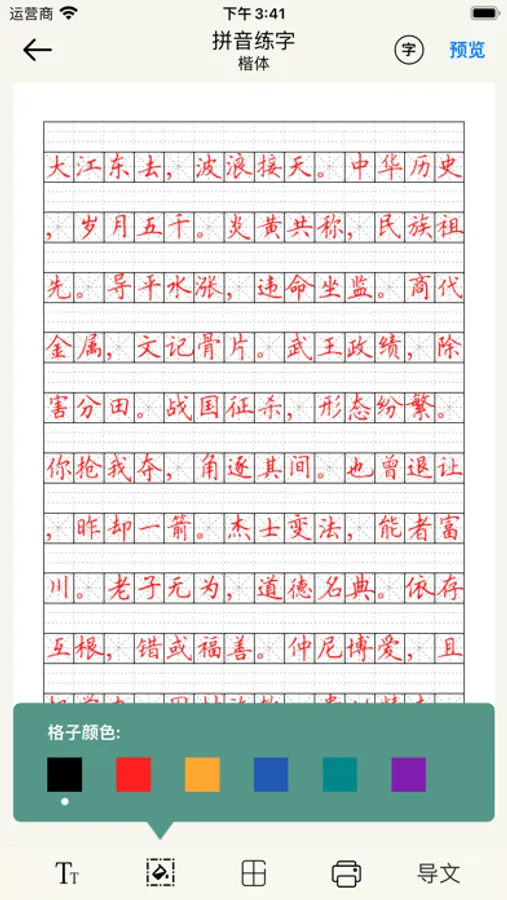 运营商 下午3:41
拼音练字
楷体
字
预览
大江东去，波浪接天。中华历史
，岁月五千。炎黄共称，民族祖
先。导平水涨，违命坐监。商代
金属，文记骨片。武王政绩，除
害分田。战国征杀，形态纷繁。
你抢我夺，角逐其间。也曾退让
，昨却一箭。杰士变法，能者富
川。老子无为，道德名典。依存
互根，错或福善。仲尼博爱，且
格子颜色:
TT
导文